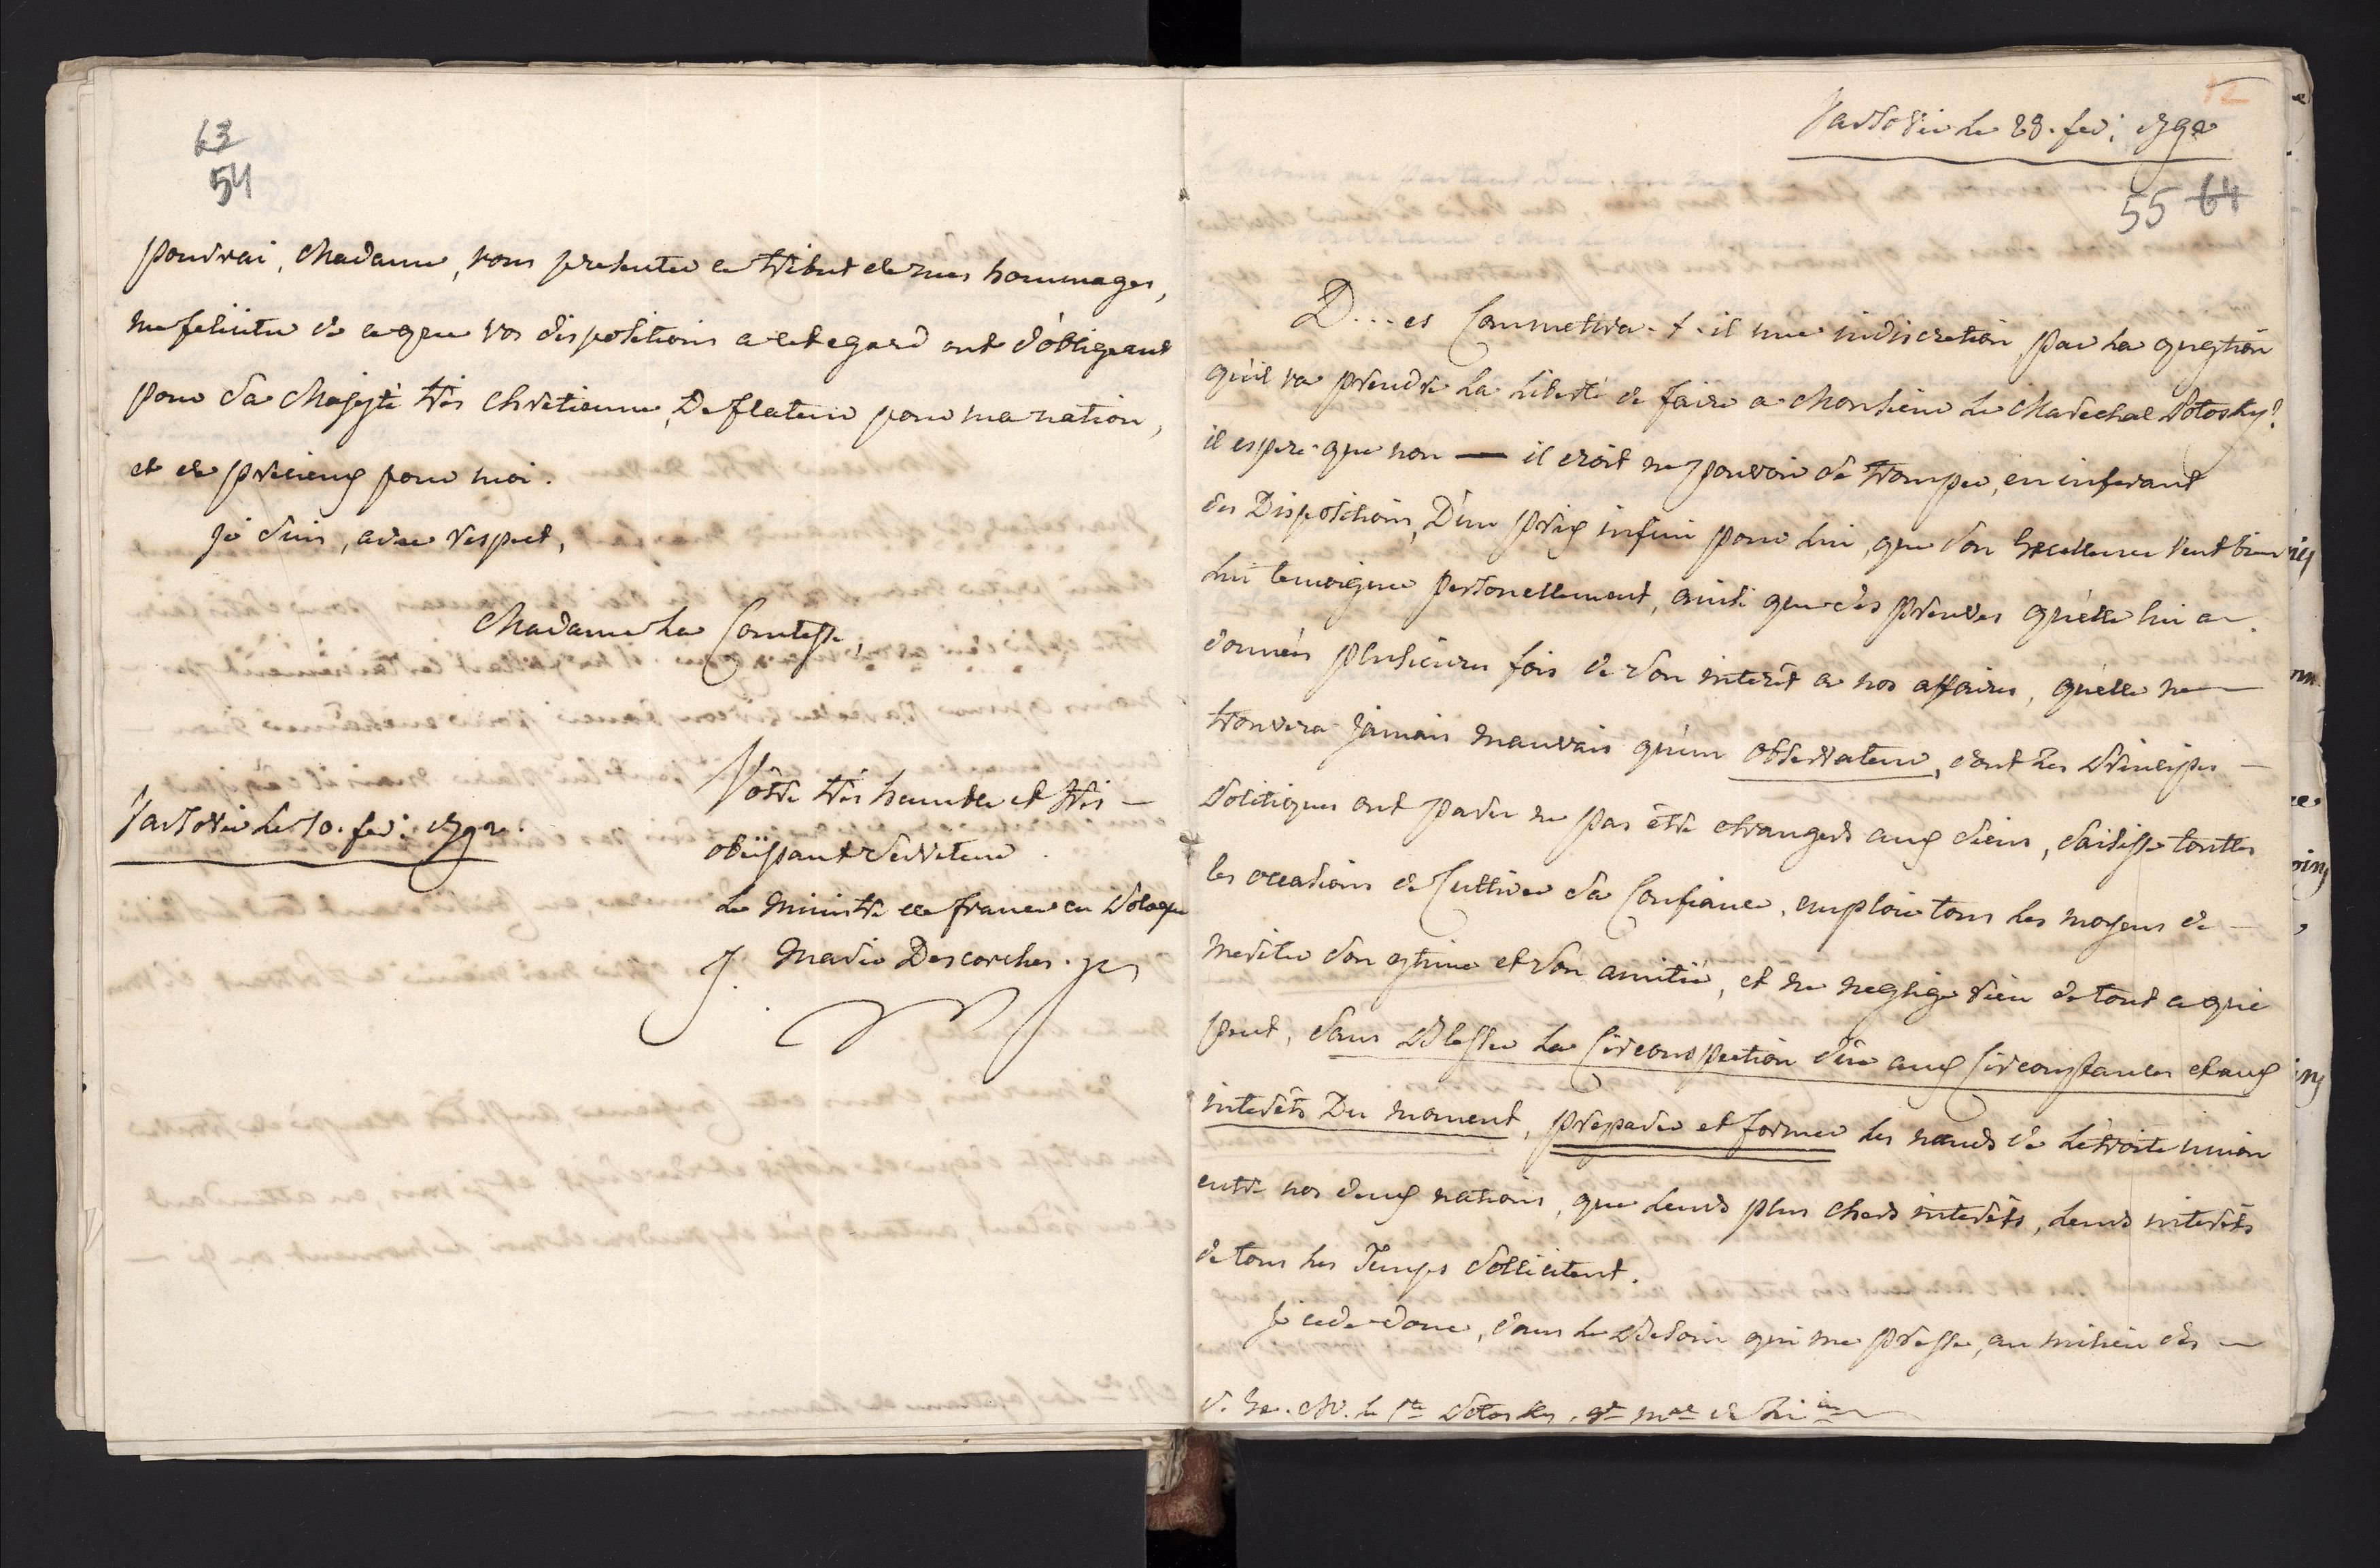 63
54
pourrai, Madame, vous presenter ce tribut de mes hommages,
me feliciter de ce que vos dispositions a cet egard ont d'obligeant
pour Sa Majesté très chretienne, De flateur pour ma nation,
et de precieux pour moi.
Je suis, avec respect,
Madame La Comtesse,
Vôtre très humble et très
obéissant Serviteur
Le Ministre de france en Pologne
J. Marie Descorches
Varsovie le 10. fev: 1792.
12
Varsovie le 28. fev: 1792
55 64
D...es Commettra-t-il une indiscretion par la question
qu'il va prendre la liberté de faire a Monsieur Le Marechal Potosky?
il espere que non — il croit ne pouvoir se tromper, en inferant
des Dispositions, D'un prix infini pour lui, que Son Excellence veut bien
lui temoigner personellement, ainsi que des preuves qu'elle lui a
données plusieurs fois de son interêt a nos affaires, qu'elle ne
trouvera jamais mauvais qu'un observateur, dont les Principes
Politiques ont paru ne pas être etrangers aux siens, saisisse touttes
les occasions de Cultiver sa Confiance, emploie tous les moyens de
meriter son estime et son amitié, et ne neglige rien de tout ce qui
peut, sans Blesser la Circonspection düe aux Circonstances et aux
interêts Du moment, preparer et former les nœuds de L'étroite union
entre nos deux nations, que leurs plus chers interêts, leurs interêts
de tous les Temps sollicitent.
Je cede donc, dans le Besoin qui me presse, au milieu des
S. Ex. M. le Cte Potosky, gd mal de Lit